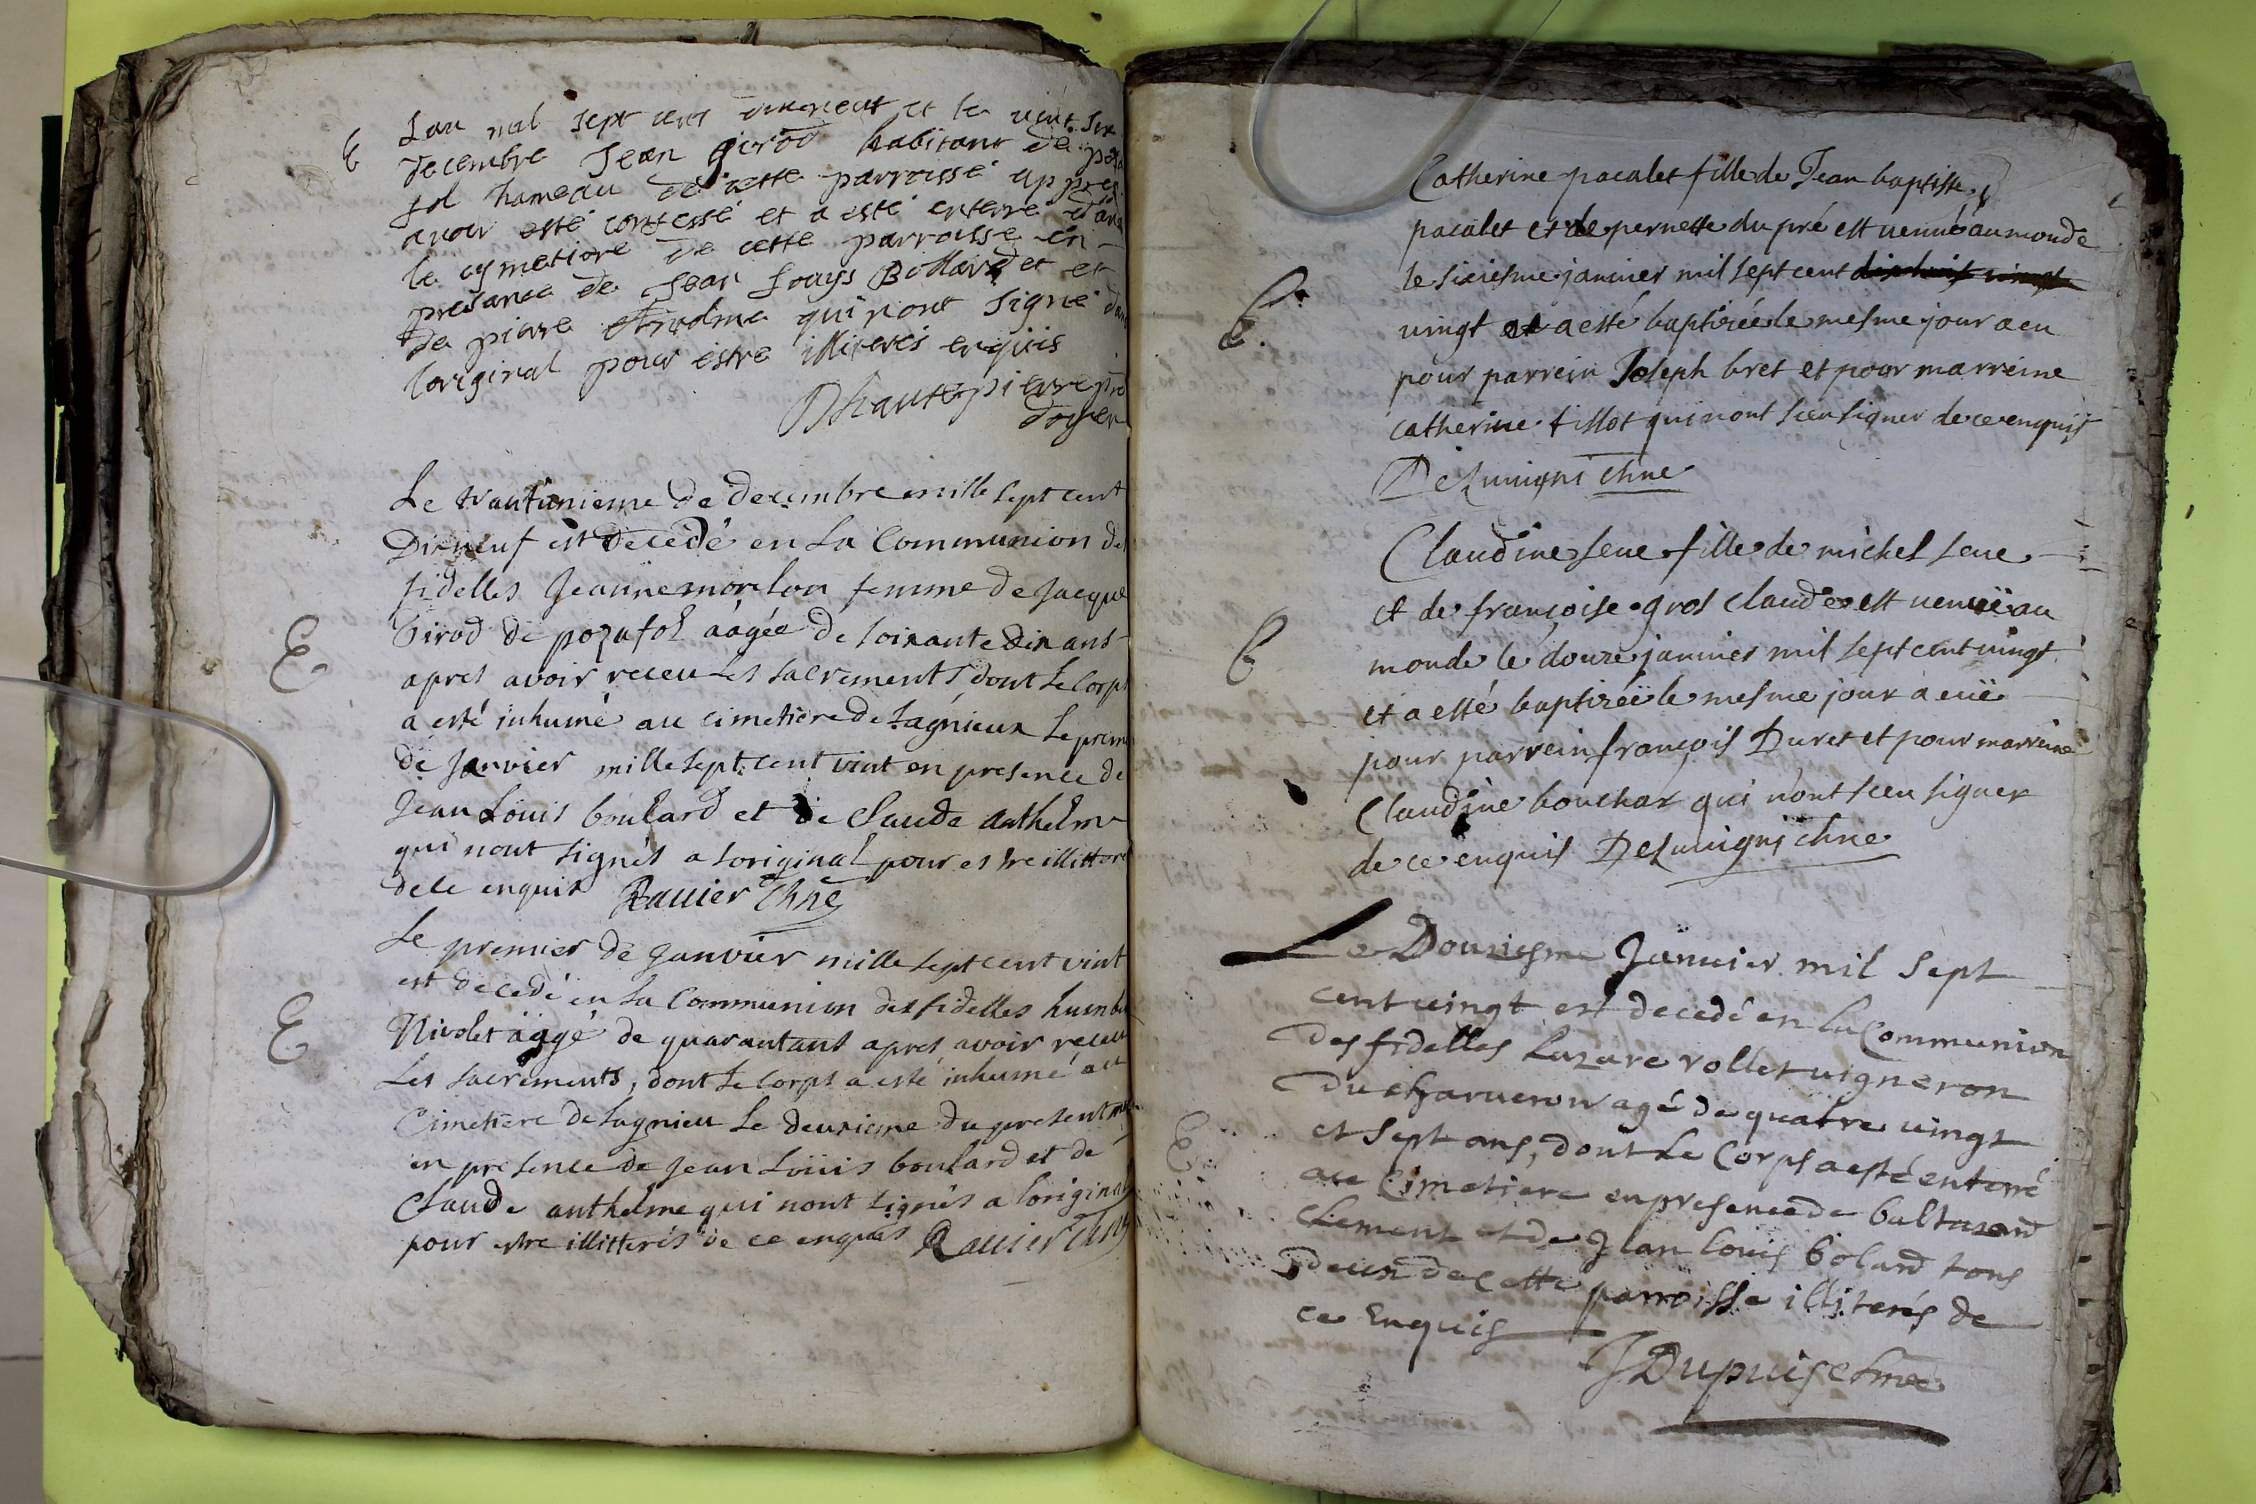 E
Lan mil sept cent et le vint six
decembre Jean girod habitant de
fol hameau de cette parroisse appres
avoir esté confessé et a esté enterré dans
le cymetiere de cette parroisse en
presance de Jean Louys Bollard et et
de pierre qui nont signé dans
loriginal pour estre illiterés enquis
Dhautepierre
doyen
Le trantunieme de decembre mille sept cent
Dixneuf est decedé en La Communion des
fidelles Jeanne morlon femme de Jacque
E
Girod de pozafol aàgée de soixante dix ans
apres avoir receu Les sacrements dont Le Corps
a esté inhumé au cimetiere de Lagnieux Le premi
de Janvier mille sept cent vint en presence de
Jean Louis boulard et de Claude anthelme
qui nont signés a loriginal pour estre illitteré
de ce enquis Rauier chne
Le premier de Janvier mille sept cent vint
est decedé en La Communion des fidelles humb
E
Nivolet aägé de quarantans apres avoir receu
Les sacrements, dont Le Corps a esté inhumé au
Cimetiere de Lagnieu Le deuxieme du present
en presence de Jean Loüis boulard et de
Claude anthelme qui nont signés a loriginal
pour estre illitterés de ce enquis Rauier chne
Catherine pacalet fille de Jean baptiste
pacalet et de pernette du pré est venuë au monde
le sixiesme janvier mil sept cent
E
vingt et a esté baptizée le mesme jour a eu
pour parrein Joseph bret et pour marreine
catherine tillot qui nont sceu signer de ce enquis
Deluuigni chne
Claudine seue fille de michel seue
et de françoise gros claude est venuë au
E
monde le douze janvier mil sept cent vingt
et a esté baptizeë le mesme jour a euë
pour parrein françois Duret et pour marreine
Claudine bouchar qui nont sceu signer
de ce enquis Deluuigni chne
Le Douziesme Januier mil sept
cent vingt est decedé en la Communion
des fidelles Lazare rollet vigneron
du charueron agé de quatre vingt
E
et sept ans, dont Le Corps a esté enterré
au Cimetiere en presence de baltazard
clement et de Jean louis bolard tous
deux de cette parroisse illiterés de
ce Enquis
J Dupuis chne